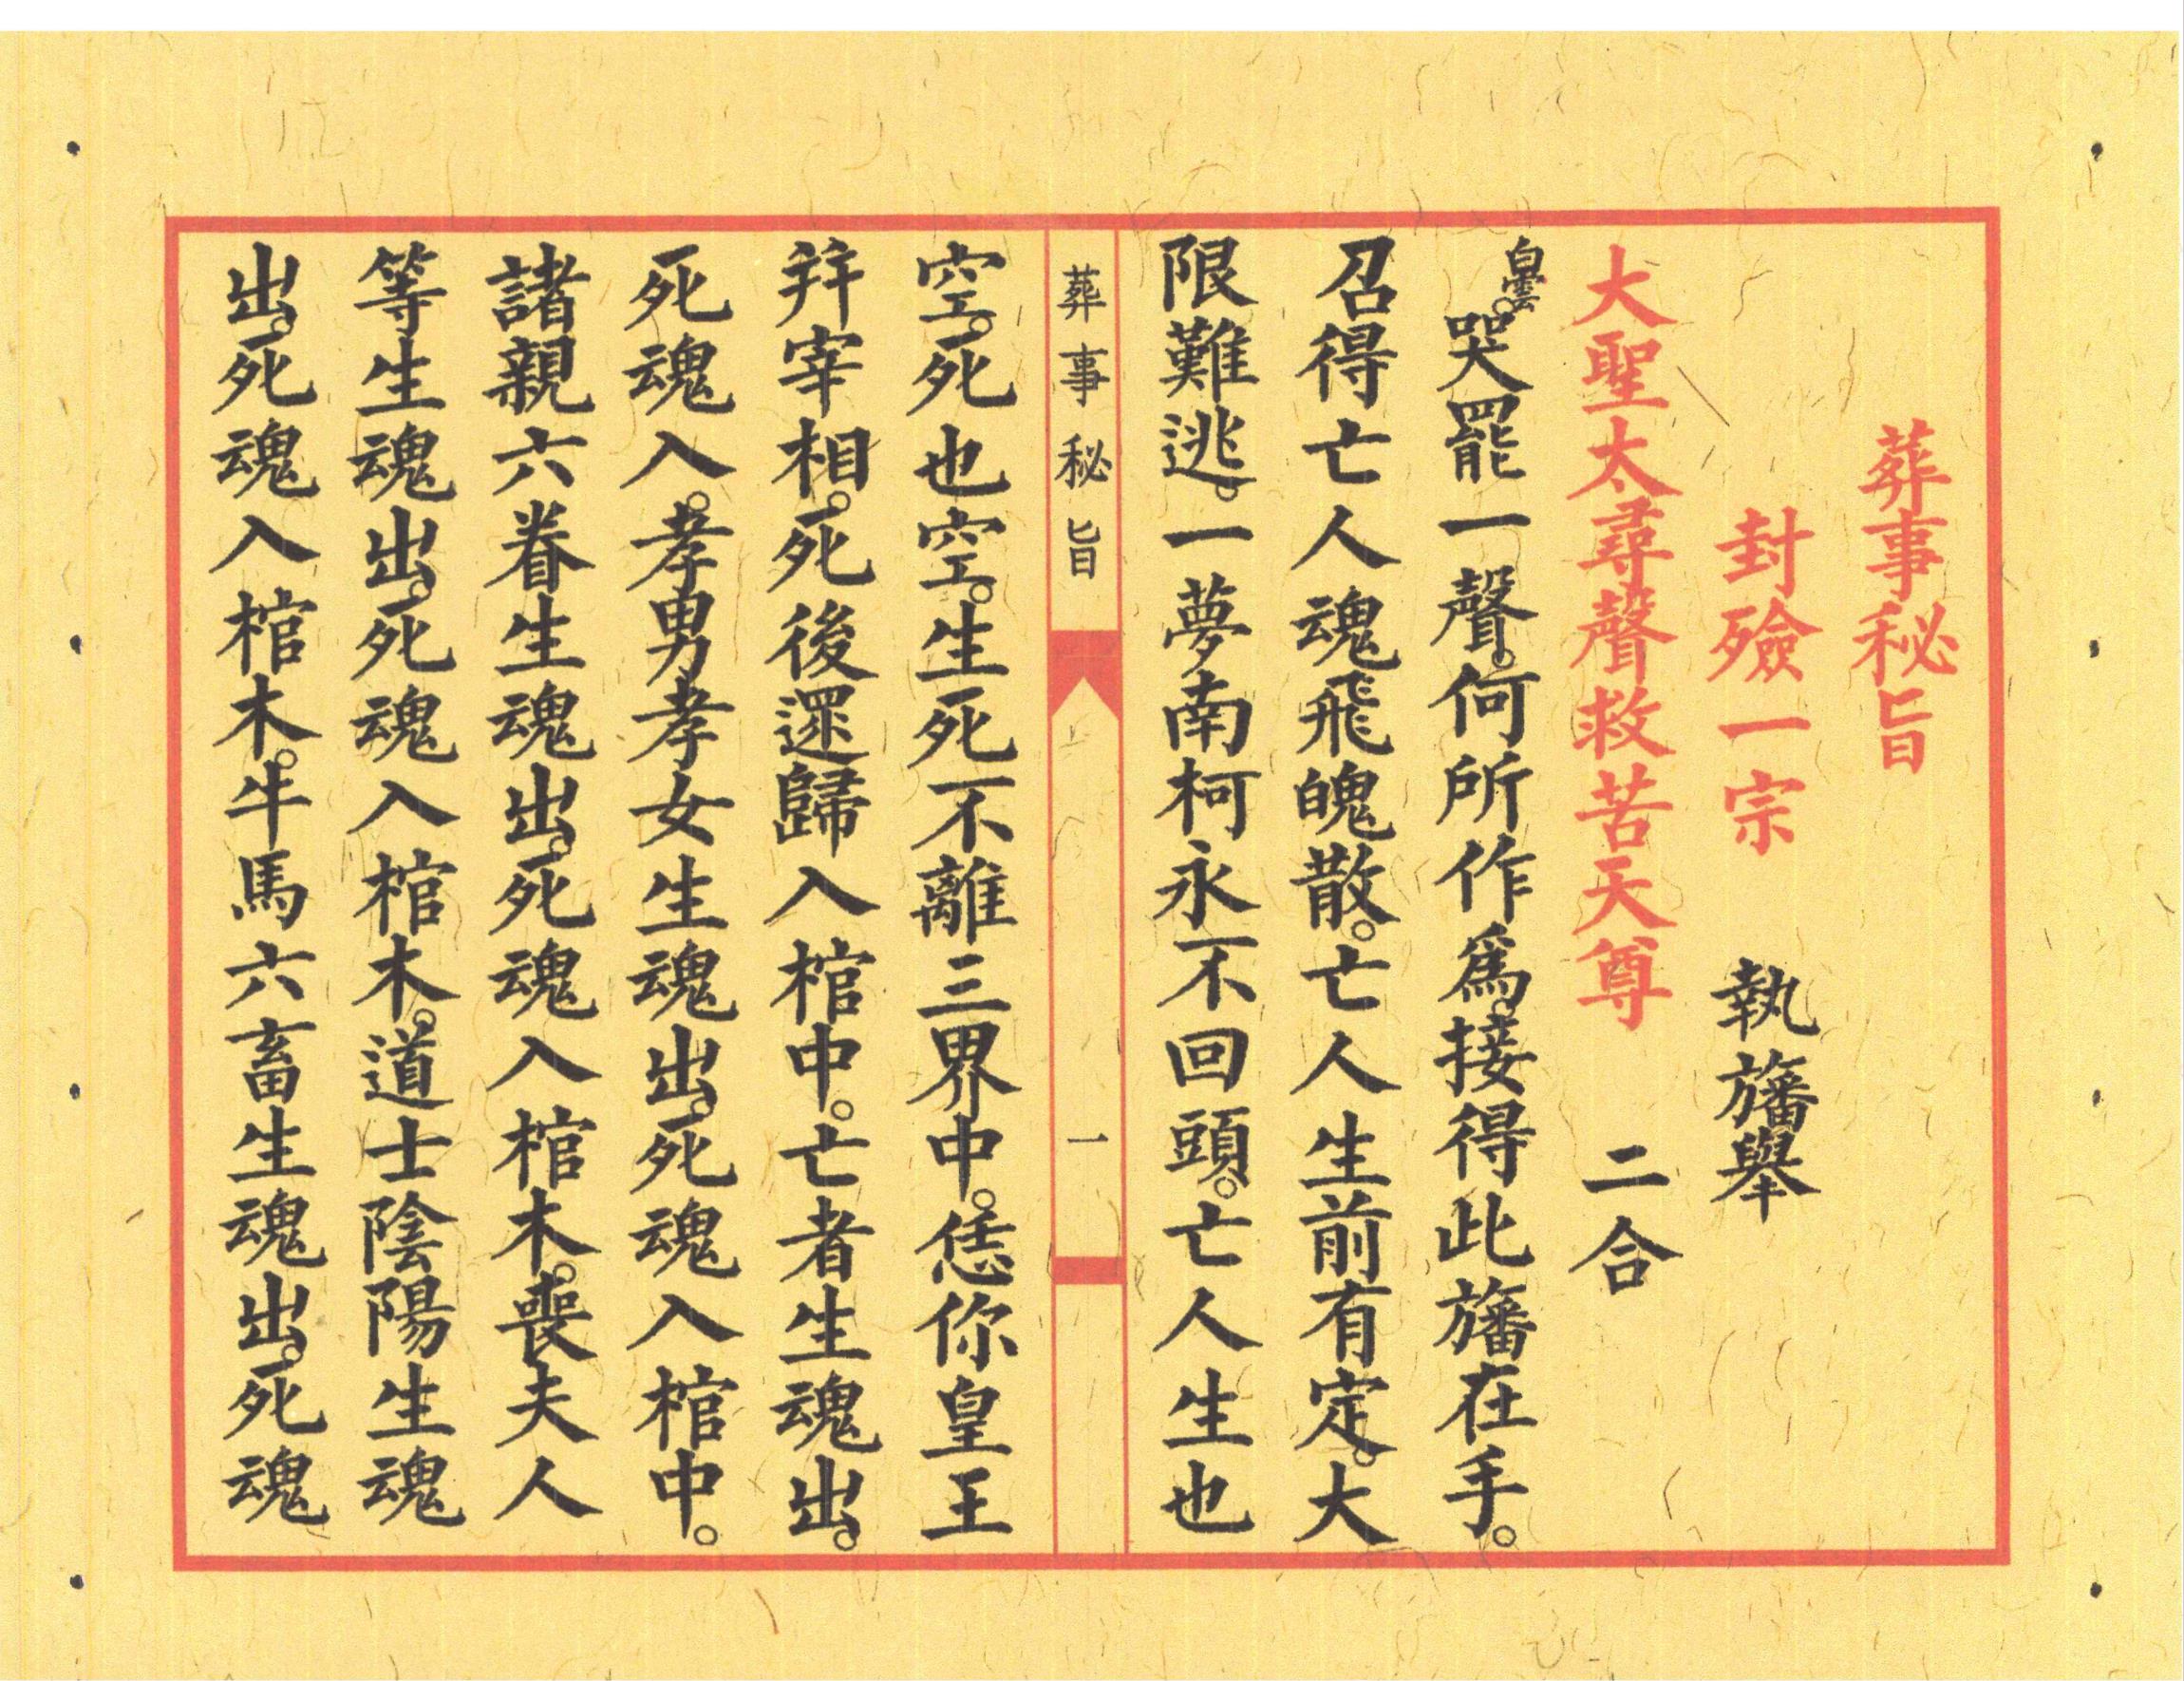 葬事秘旨
封殮一宗　執旛舉
大聖太尋聲救苦天尊　二合
白。哭罷一聲。何所作爲。接得此旛在手。
召得亡人魂飛魄散。亡人生前有定。大
限難逃。一夢南柯永不回頭。亡人生也
葬事秘旨　一
空。死也空。生死不離三界中。恁你皇王
并宰相。死後還歸入棺中。亡者生魂出。
死魂入。孝男孝女生魂出。死魂入棺中。
諸親六眷生魂出。死魂入棺木。喪夫人
等生魂出。死魂入棺木。道士陰陽生魂
出。死魂入棺木。牛馬六畜生魂出。死魂